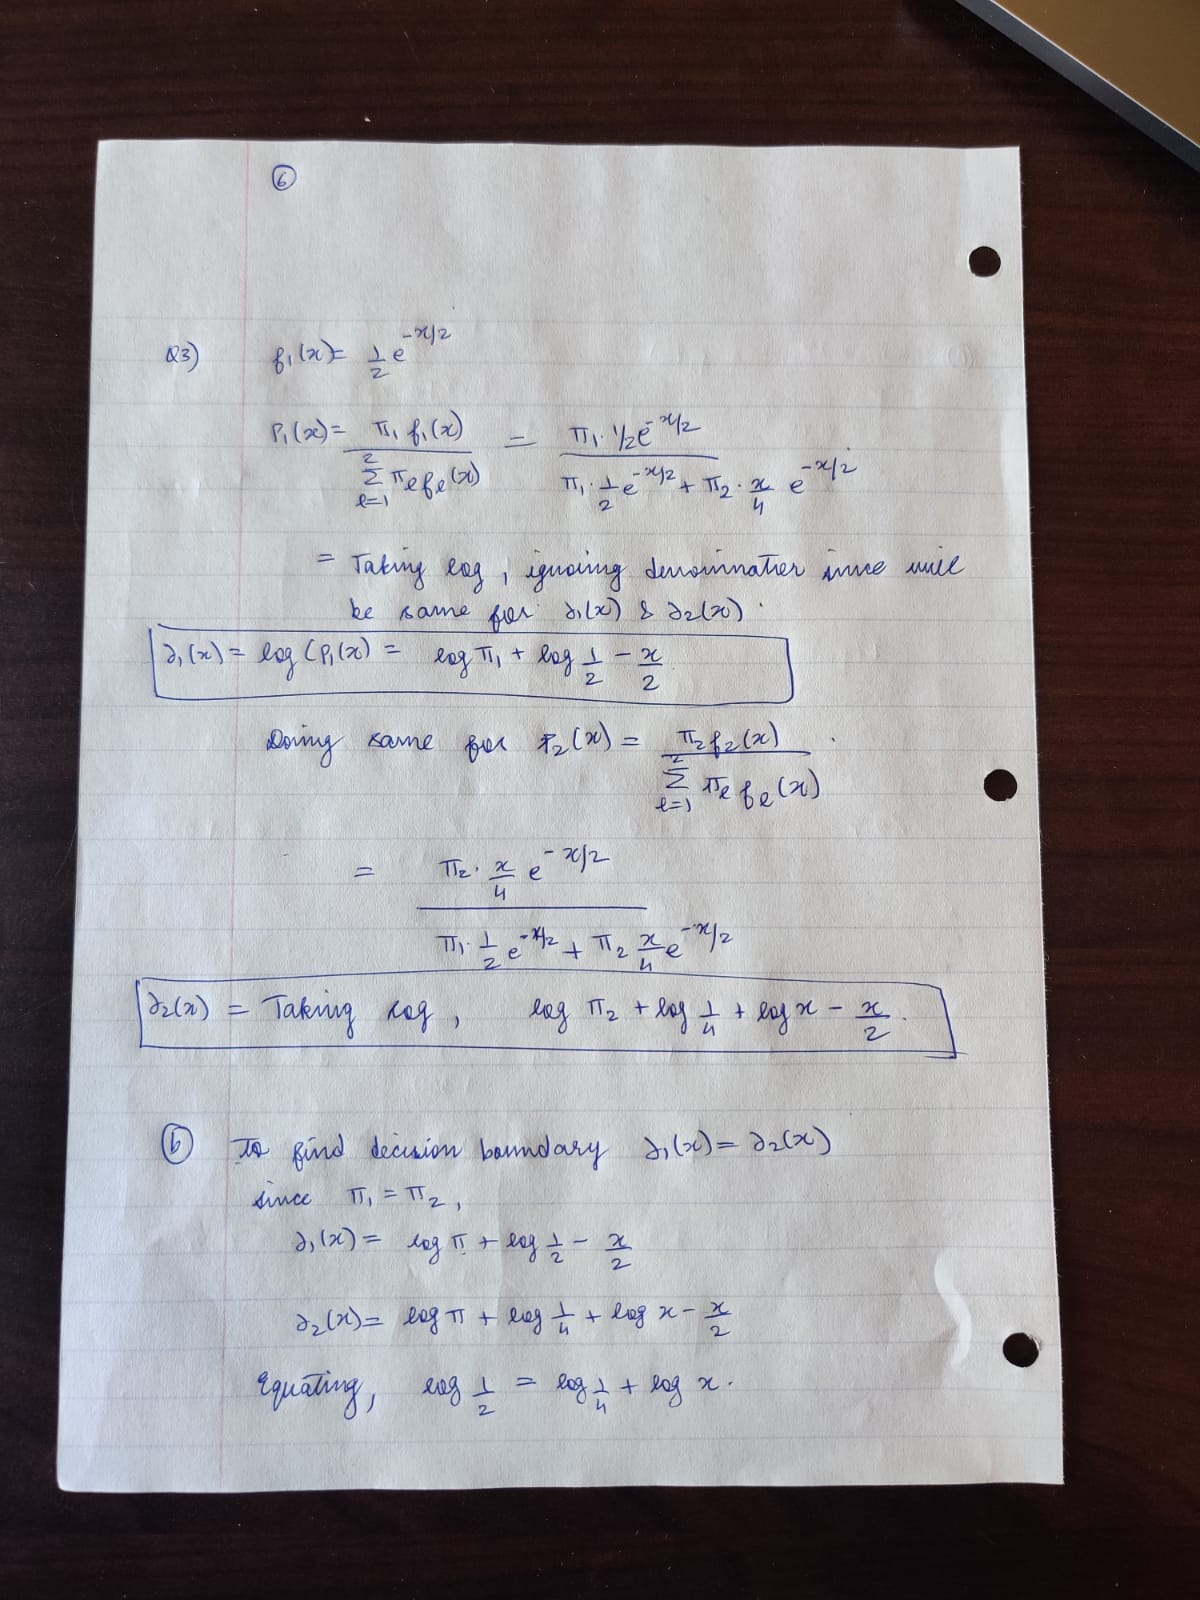 6
Q3) f₁(x) = 1/2 e^(-x/2)
P₁(x) = π₁ f₁(x) / Σ_{l=1}^{2} π_l f_l(x) = π₁ · 1/2 e^(-x/2) / (π₁ · 1/2 e^(-x/2) + π₂ · x/4 e^(-x/2))
= Taking log, ignoring denominator since will
be same for ∂₁(x) & ∂₂(x).
∂₁(x) = log (P₁(x) = log π₁ + log 1/2 - x/2
Doing same for P₂(x) = π₂ f₂(x) / Σ_{l=1}^{2} π_l f_l(x)
= π₂ · x/4 e^(-x/2) / (π₁ · 1/2 e^(-x/2) + π₂ x/4 e^(-x/2))
∂₂(x) = Taking log, log π₂ + log 1/4 + log x - x/2.
b To find decision boundary ∂₁(x) = ∂₂(x)
since π₁ = π₂,
∂₁(x) = log π + log 1/2 - x/2
∂₂(x) = log π + log 1/4 + log x - x/2
Equating, log 1/2 = log 1/4 + log x.